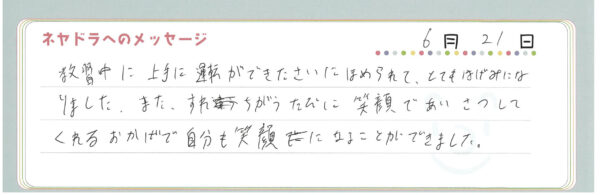 ネヤドラへのメッセージ
6月 21日
教習中に上手に運転ができたさいにほめられて、とてもはげみにな
りました。また、すれちがうたびに笑顔であいさつして
くれるおかげで自分も笑顔になることができました。